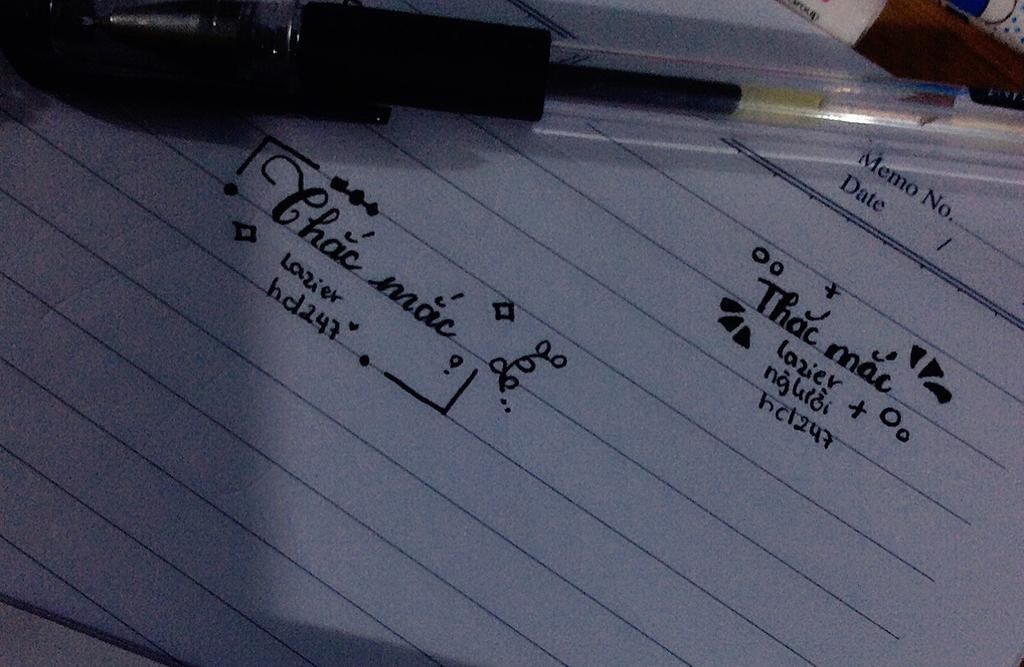 Thắc mắc
lazier
hd247
?
Thắc mắc
lazier
người
hd247
Memo No.
Date /